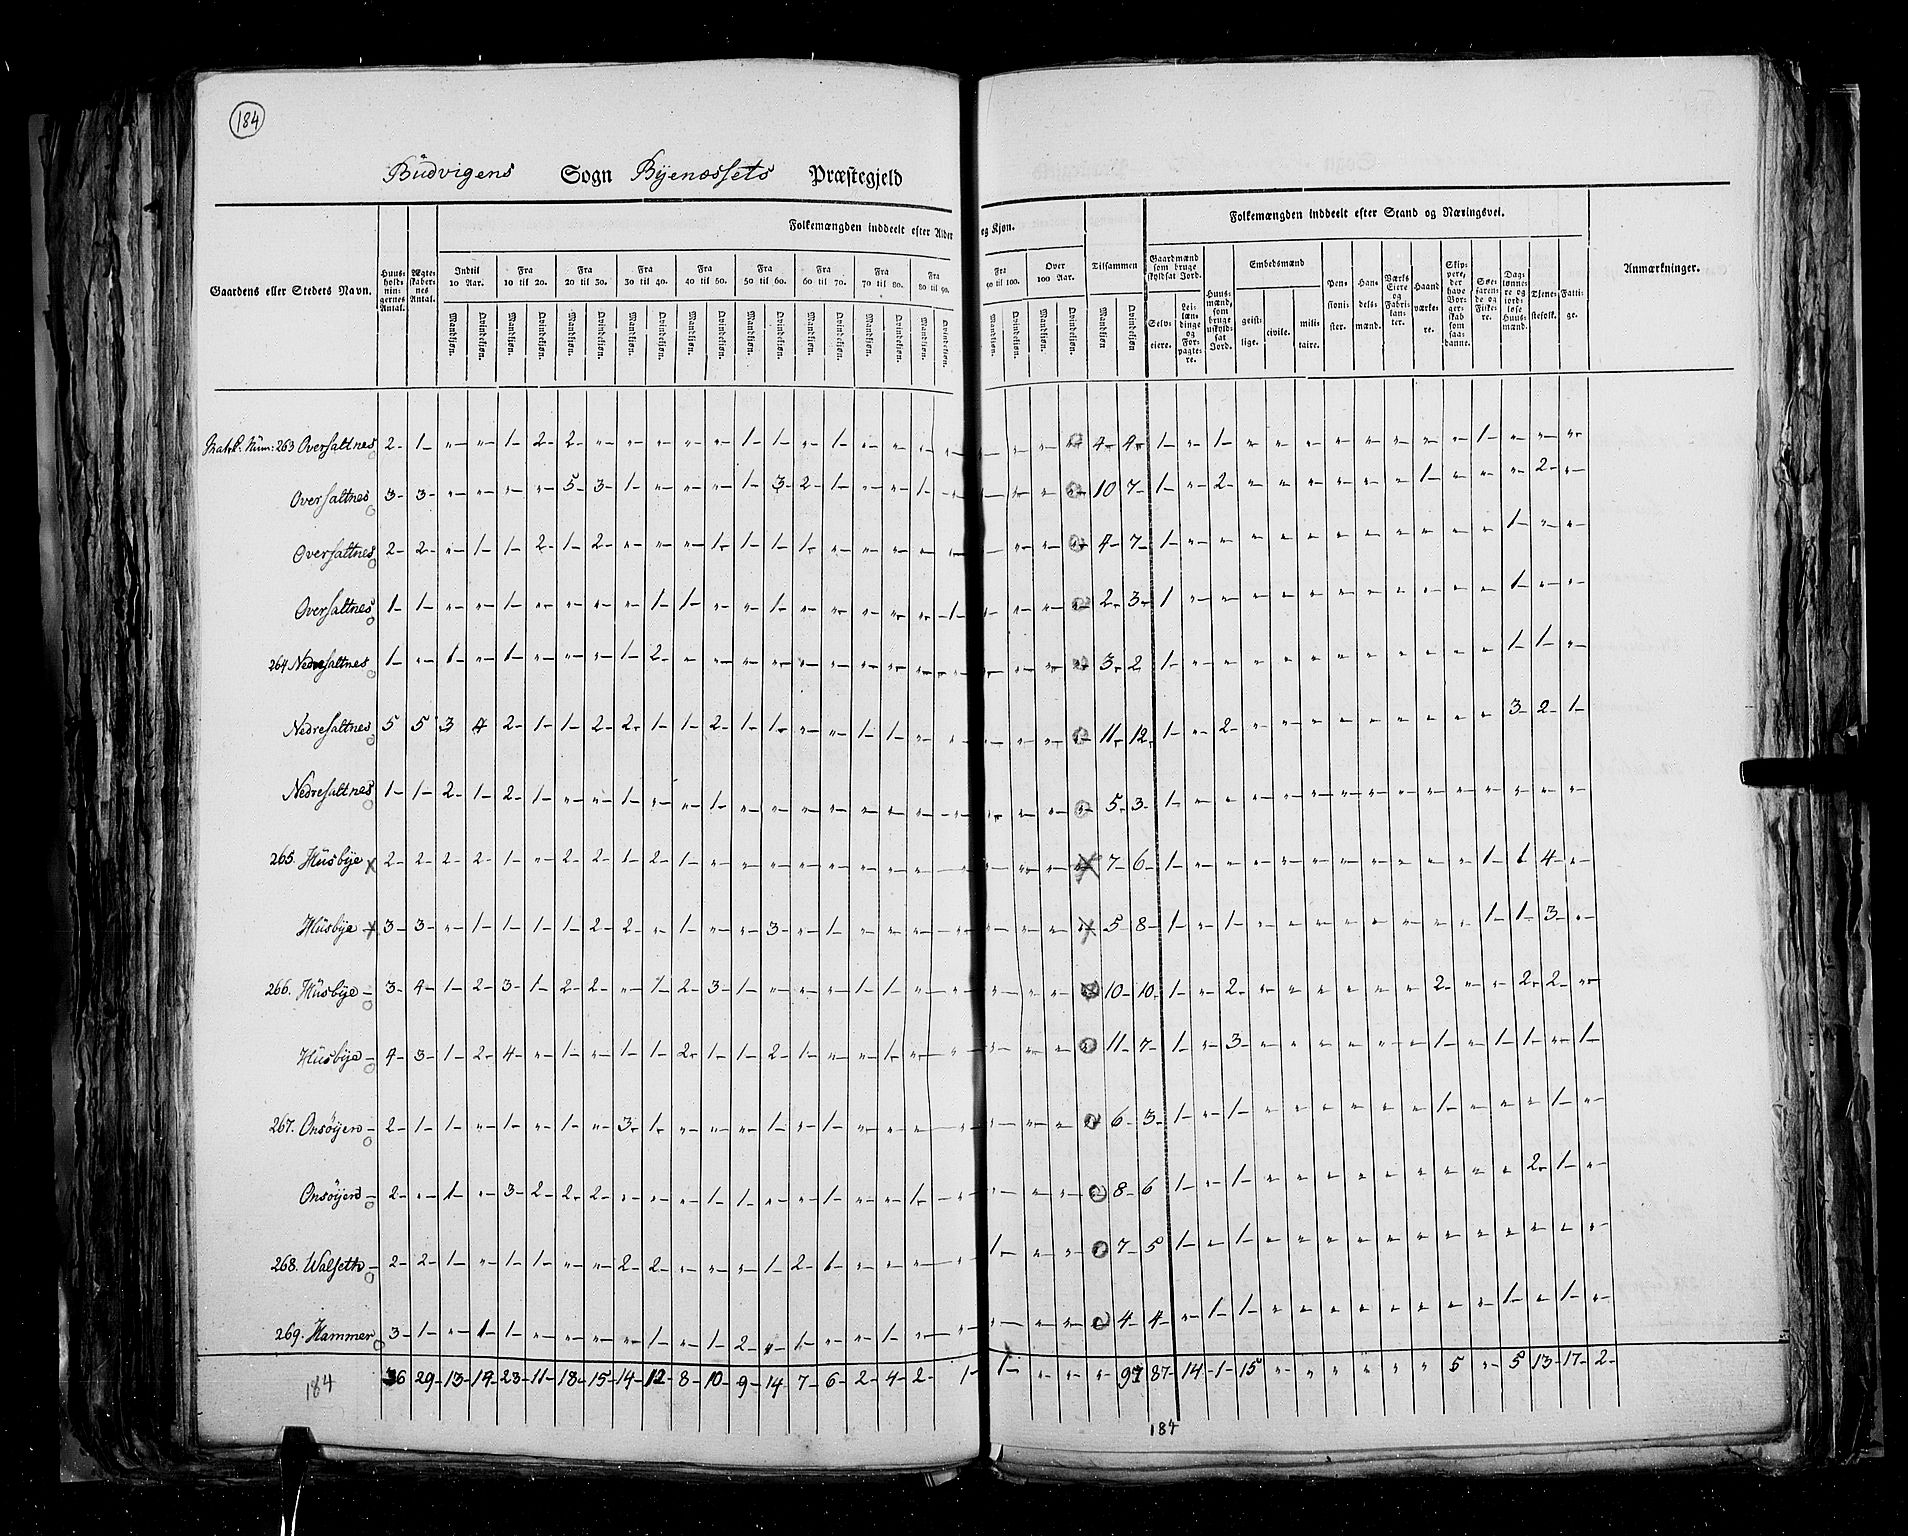 184
Büdvigens Sogn Bÿenæssets Præstegjeld
Folkemængden inddeelt efter Alder og Kjøn.
Folkemængden inddeelt efter Stand og Næringsvei.
Gaardens eller Stedets Navn.
Huus-holdningernes Antal.
Ægteskabernes Antal.
Indtil 10 Aar. Fra 10 til 20. Fra 20 til 30. Fra 30 til 40. Fra 40 til 50. Fra 50 til 60. Fra 60 til 70. Fra 70 til 80. Fra 80 til 90. Fra 90 til 100. Over 100 Aar. Tilsammen
Mandkjøn. Qvindekjøn.
Gaardmænd som bruge skyldsat Jord.
Selveiere. Leilændinge og Forpagtere.
Huusmænd, som bruge uskyldsat Jord.
Embedsmænd
geistlige. civile. militaire.
Pensionister. Handelsmænd. Værks Eiere og Fabrikanter. Haandværkere.
Skippere, der have Borgerskab som saadanne.
Søefarende og Fiskere.
Dagslønnere og jordløse Huusmænd.
Tjenestefolk. Fattige.
Anmærkninger.
Matr. Num: 263 Oversaltnes 2 1 " " 1 2 2 " " " " " 1 1 " 1 " " " " " " " " 4 4 1 " 1 " " " " " " " " 1 " " "
Oversaltnes 3 3 " " " " 5 3 1 " " " 1 3 2 1 " " 1 " " " " " 10 7 1 " 2 " " " " " " 1 " " " 2 "
Oversaltnes 2 2 " 1 1 2 1 2 " " " 1 1 1 1 " " " " " " " " " 4 7 1 " " " " " " " " " " " 1 " "
Oversaltnes 1 1 " " 1 " " " " 1 1 " " 1 " " " " " 1 " " " " 2 3 1 " " " " " " " " " " " 1 " "
264 Nedresaltnes 1 " 1 " 1 " " " 1 2 " " " " " " " " " " " " " " 3 2 1 " " " " " " " " " " " 1 1 "
Nedresaltnes 5 5 3 4 2 1 1 2 2 1 1 2 1 1 " " 1 1 " " " " " " 11 12 1 " 2 " " " " " " " " " 3 2 1
Nedresaltnes 1 1 2 1 2 1 " " 1 " " 1 " " " " " " " " " " " " 5 3 1 " " " " " " " " " " " " " "
265. Hüsbÿe 2 2 2 2 1 " 2 2 1 2 1 " " " " " " " " " " " " " 7 6 1 " " " " " " " " " " 1 1 4 "
Hüsbÿe 3 3 " 1 1 1 1 2 2 " 1 " " 3 " 1 " " " " " " " " 5 8 1 " 1 " " " " " " " " 1 1 3 "
266. Hüsbÿe 3 4 1 2 3 1 2 2 " 1 2 3 1 " " " 1 1 " " " " " " 10 10 1 " 2 " " " " " " 2 " " 2 2 "
Hüsbÿe 4 3 1 2 4 " 1 " 1 1 2 1 1 2 1 " " 1 " " " " " " 11 7 1 " 3 " " " " " " 1 " 1 1 " 1
267. Onsöÿen 2 1 1 " 1 " 1 " 3 1 " " " 1 " 1 " " " " " " " " 6 3 1 " 1 " " " " " " 1 " " " 1 "
Onsöÿen 2 " 1 " 3 2 2 2 " " " 1 1 " " 1 " " 1 " " " " " 8 6 1 " 1 " " " " " " " " " 2 1 "
268. Walseth 2 2 1 " 1 1 " " 2 2 " " " 1 2 1 " " " " 1 " " " 7 5 1 " 1 " " " " " " " " " " " "
269. Hammer 3 1 " 1 1 " " " " 1 " 1 2 " 1 " " 1 " " " " " " 4 4 " 1 1 " " " " " " " " 1 " 1 "
184 36 29 13 14 23 11 18 15 14 12 8 10 9 14 7 6 2 4 2 1 1 " " " 97 87 14 1 15 " " " " " " 5 " 5 13 17 2
184